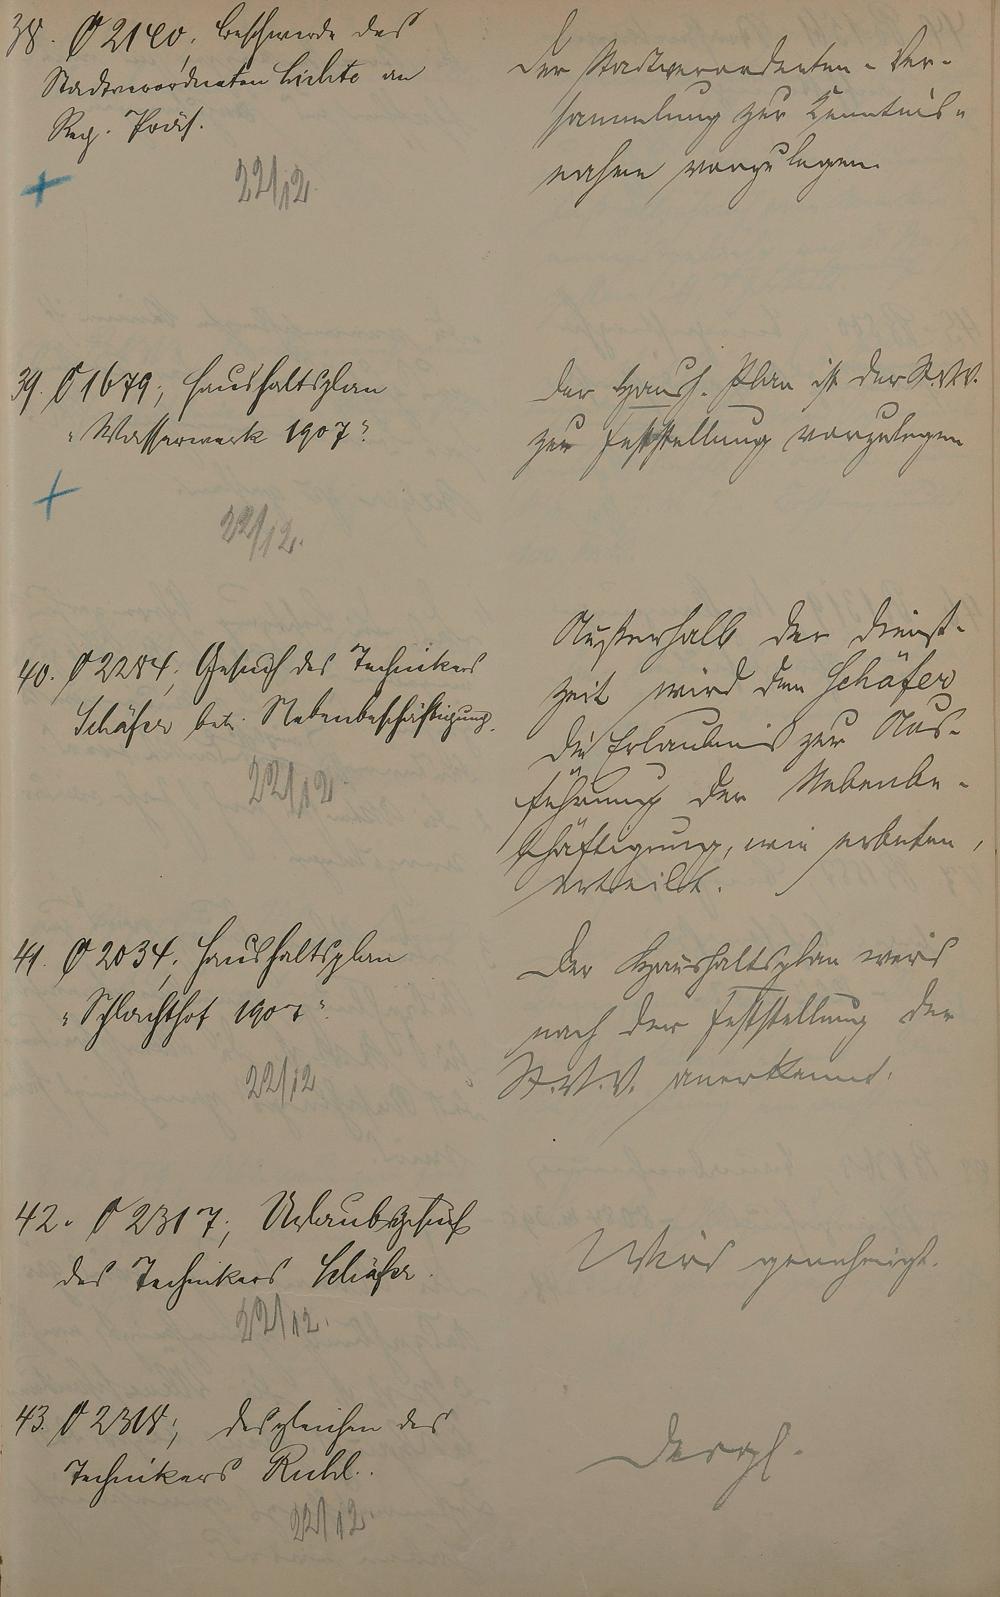 38. O 2140, Beschwerde des
Stadtverordneten Lichte an
Reg. Präs.
22/12.
Der Stadtverordneten-Ver-
sammlung zur Kenntnis-
nahme vorzulegen.
39. O 1679, Haushaltsplan
"Wasserwerk 1907".
22/12.
Der Haush. Plan ist der St.V.V.
zur Feststellung vorzulegen
40. O 2284, Gesuch des Technikers
Schäfer betr. Nebenbeschäftigung.
22/12.
Außerhalb der Dienst-
zeit wird dem Schäfer
die Erlaubnis zur Aus-
führung der Nebenbe-
schäftigung, wie erbeten,
erteilt.
41. O 2034, Haushaltsplan
"Schlachthof 1907".
22/12
Der Haushaltsplan wird
nach der Feststellung der
St.V.V. anerkannt.
42. O 2317, Urlaubsgesuch
des Technikers Schäfer.
22/12.
Wird genehmigt.
43. O 2318, desgleichen des
Technikers Ruhl.
22/12.
Desgl.